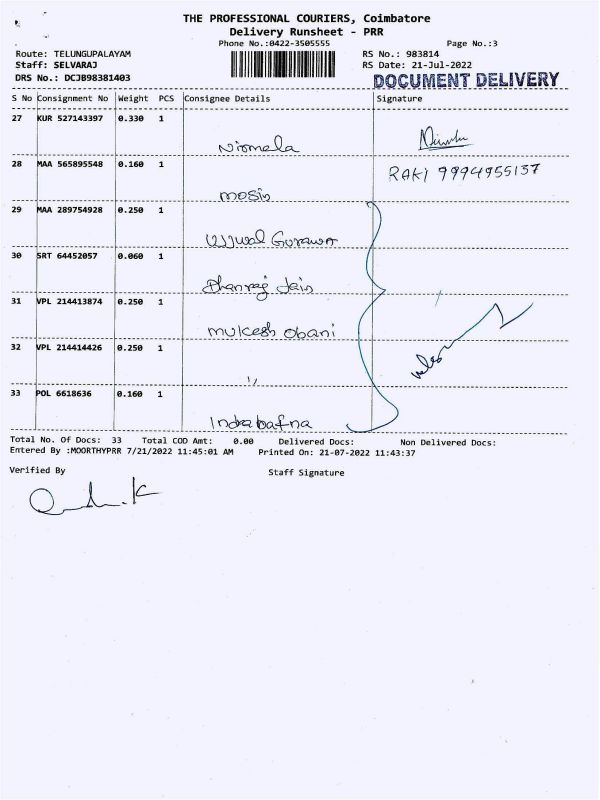 THE PROFESSIONAL COURIERS, Coimbatore
Delivery Runsheet - PRR
Phone No.:0422-3505555 Page No.:3
Route: TELUNGUPALAYAM RS No.: 983814
Staff: SELVARAJ RS Date: 21-Jul-2022
DRS No.: DCJB98381403 DOCUMENT DELIVERY
S No Consignment No Weight PCS Consignee Details Signature
27 KUR 527143397 0.330 1
Nirmela
28 MAA 565895548 0.160 1 RAKI 9994955137
mosin
29 MAA 289754928 0.250 1
Ujjwal Gurawa
30 SRT 64452057 0.060 1
Dhanraj Jain
31 VPL 214413874 0.250 1
mukesh Obani
32 VPL 214414426 0.250 1
"
33 POL 6618636 0.160 1
Indrabafna
Total No. Of Docs: 33 Total COD Amt: 0.00 Delivered Docs: Non Delivered Docs:
Entered By :MOORTHYPRR 7/21/2022 11:45:01 AM Printed On: 21-07-2022 11:43:37
Verified By Staff Signature